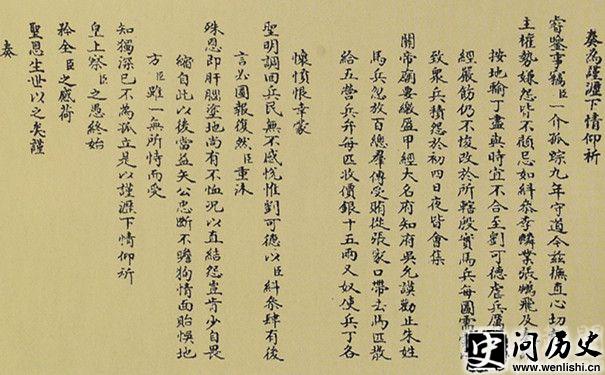 奏為謹瀝下情仰祈
睿鑒事竊臣一介孤踪九年守道今茲撫直心切
主權勢嫌怨皆不顧忌如糾叅李麟業張鵬飛及
按地輸丁盡與時宜不合至劉可德虐兵
經嚴飭仍不悛改於所轄殷實馬兵每圖
致眾兵積怨於初四日夜皆會集
關帝廟要繳盔甲經大名府知府吳允謨勸止朱姓
馬兵忽放百總羣傳受賄從張家口帶去馬匹散
給五營兵弁每匹收價銀十五兩又奴使兵丁各
懷憤恨幸蒙
聖明調回兵民無不感悅惟劉可德以臣糾叅肆有後
言必圖報復然臣重沐
殊恩即肝腦塗地尚有不恤況以直結怨豈肯少自畏
縮自此以後當益矢公忠斷不瞻狥情面貽悞地
方臣雖一無所恃而受
知獨深已不為孤立是以謹瀝下情仰祈
皇上察臣之愚終始
矜全臣之感荷
聖恩生世以之矣謹
奏
史 问历史
www.wenlishi.cn